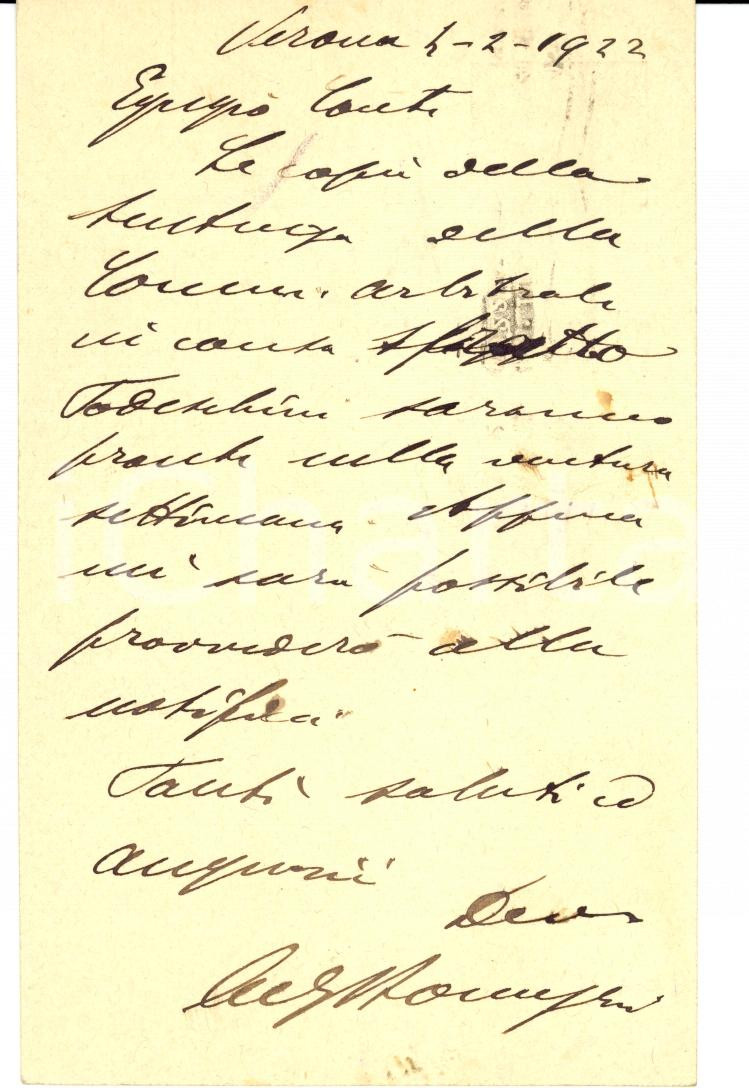 Verona 4-2-1922
Egregio Conte
Le copie della
sentenza della
Comm. arbitrale
in causa
Todeschini saranno
pronte nella ventura
settimana. Appena
mi sarà possibile
provvederò alla
notifica.
Tanti saluti ed
augurii
Dev